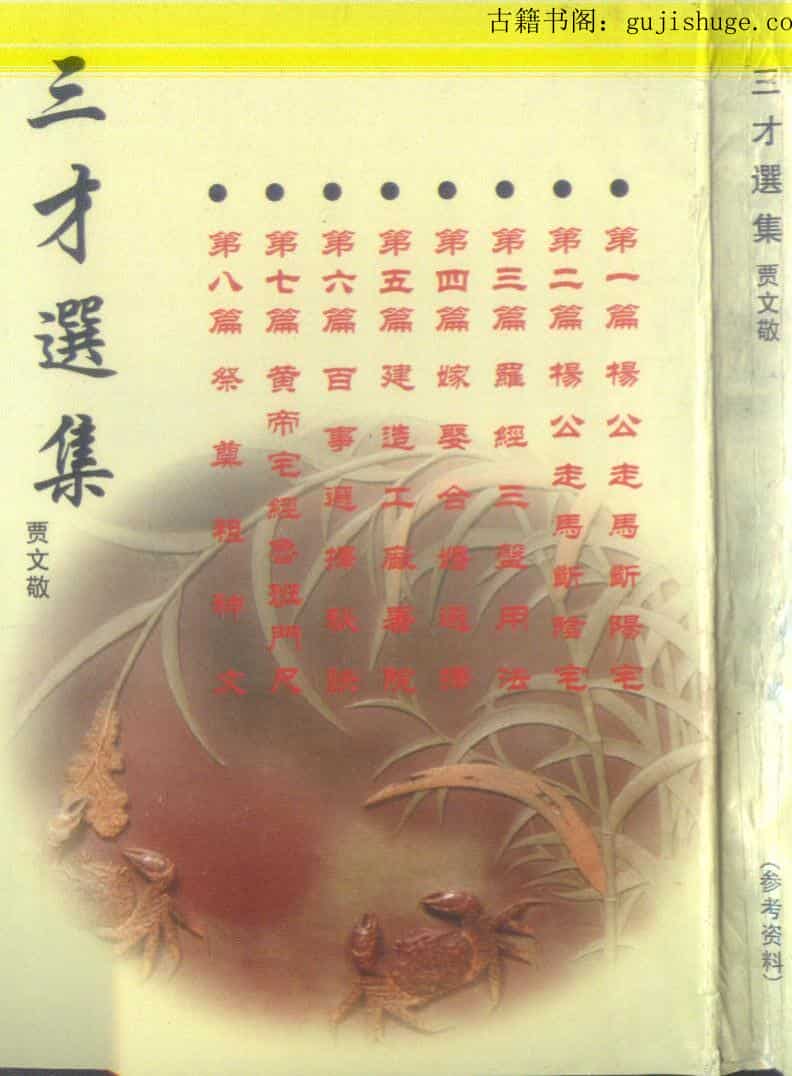 古籍书阁：gujishuge.co
三才選集
贾文敬
● 第一篇 楊公走馬断陽宅
● 第二篇 楊公走馬断陰宅
● 第三篇 羅經三盤用法
● 第四篇 嫁娶合婚選擇
● 第五篇 建造工廠院
● 第六篇 百事選擇秘訣
● 第七篇 黄帝宅經魯班門尺
● 第八篇 祭奠祖神文
三才選集 贾文敬
(参考资料)